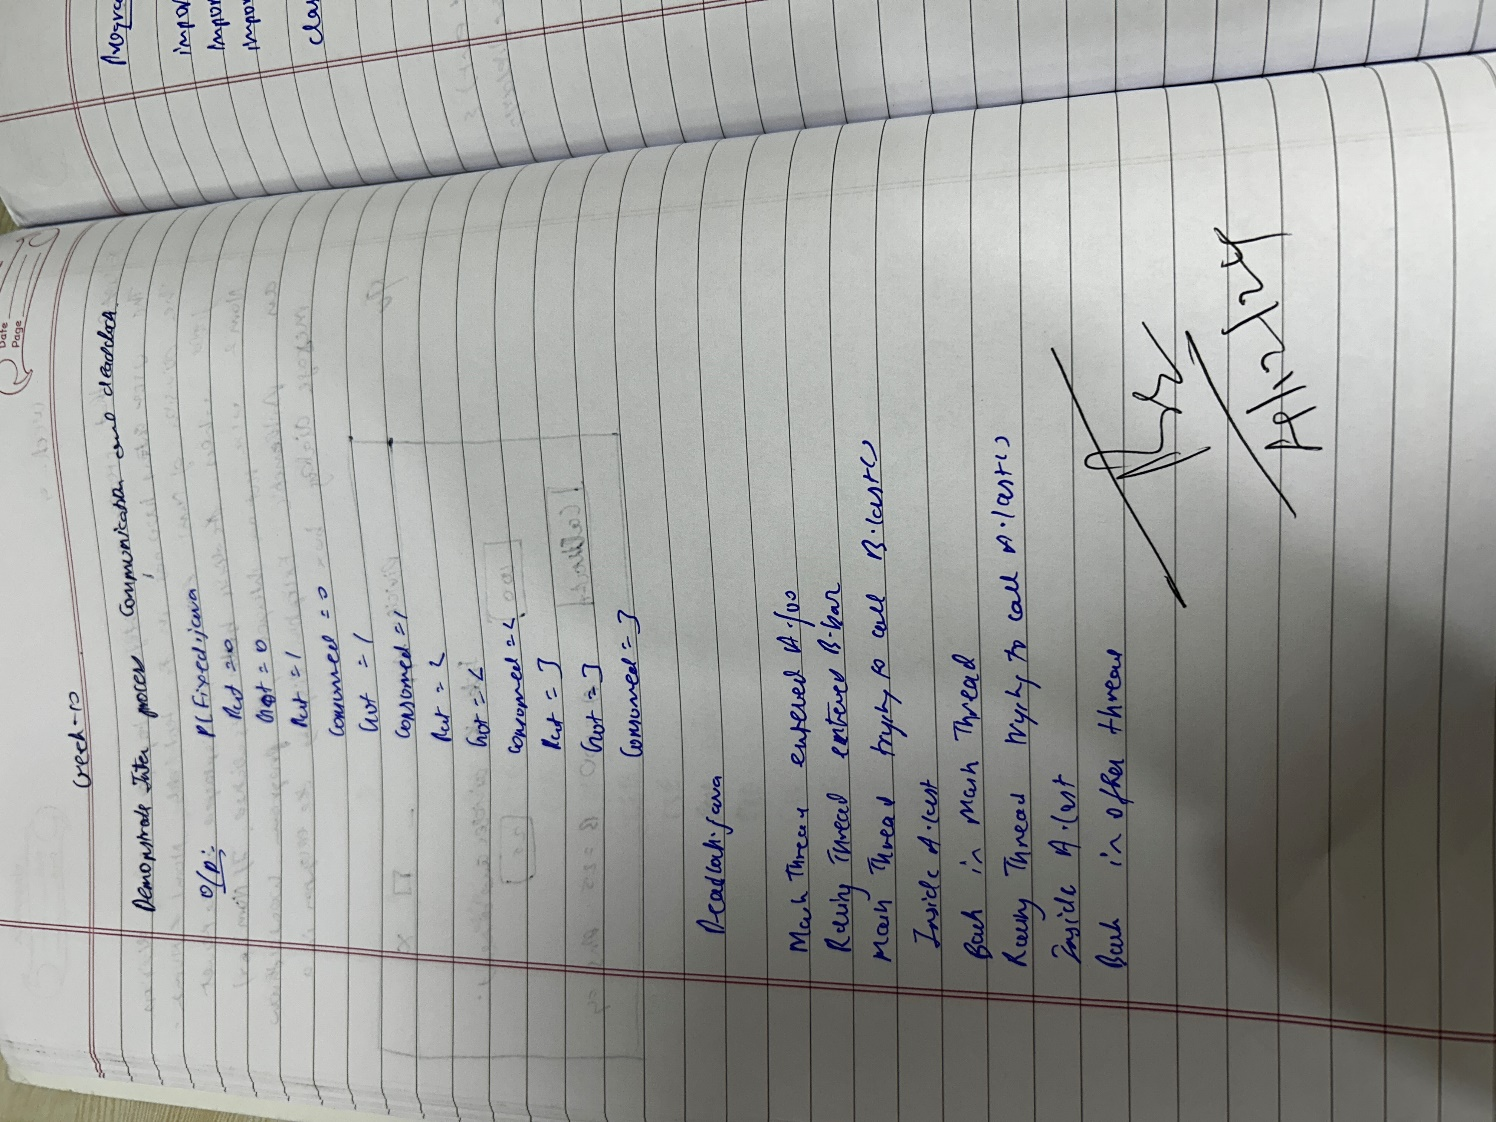 Date
Page
Creek-10
Demonstrate Inter process Communication and deadlock.
O/P:
PCFixed.java
Put = 0
Got = 0
Put = 1
Consumed = 0
Got = 1
Consumed = 1
Put = 2
Got = 2
Consumed = 2
Put = 3
Got = 3
Consumed = 3
Deadlock.java
Main Thread entered A.foo
Racing Thread entered B.bar
Main Thread trying to call B.last()
Inside A.last
Back in Main Thread
Racing Thread trying to call A.last()
Inside A.last
Back in other thread
Progra
impor
impor
impor
clas